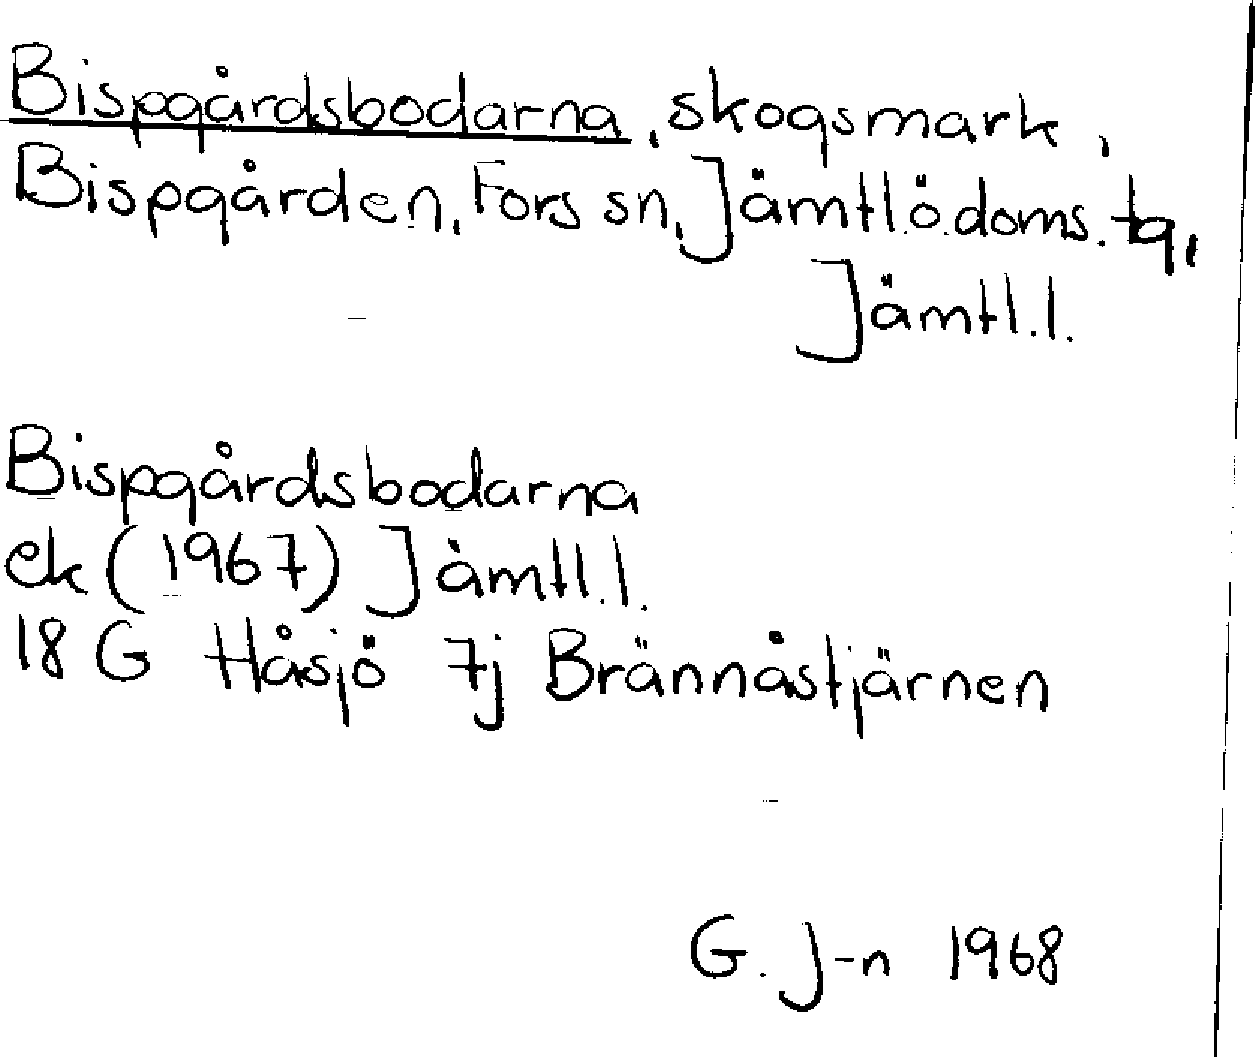 Bispgårdsbodarna, skogsmark,
Bispgården, Fors sn, Jämtl.ö.doms.tg,
Jämtl.l.
Bispgårdsbodarna
ek (1967) Jämtl.l.
18 G Håsjö 7j Brännåstjärnen
G. J-n 1968